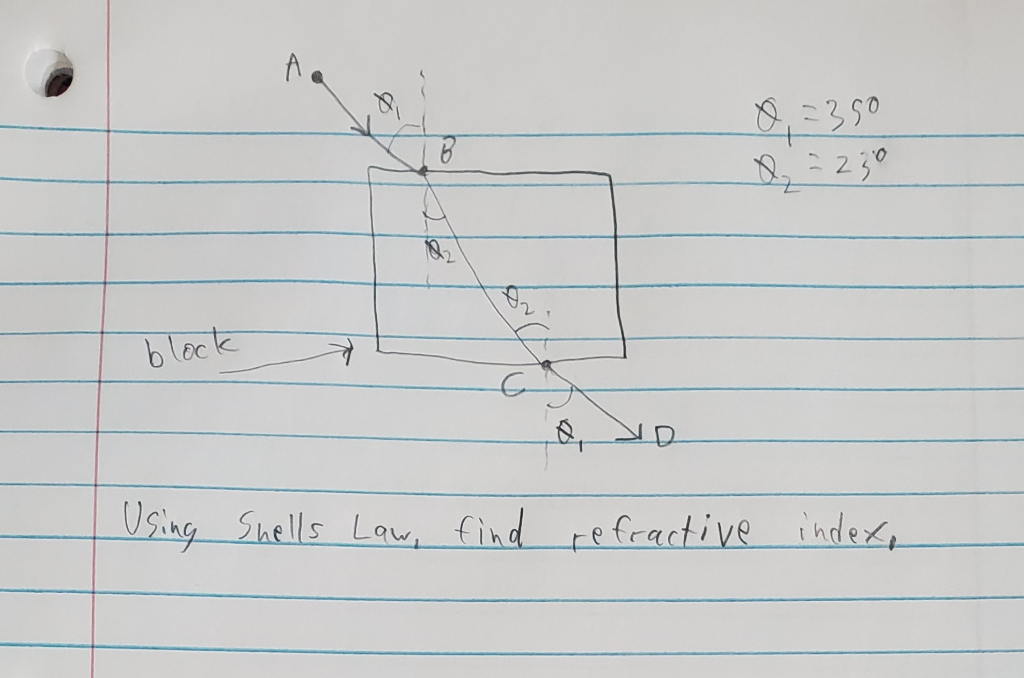 A
θ₁
B
θ₁ = 35°
θ₂ = 23°
θ₂
θ₂
block
C
θ₁
D
Using Snells Law, find refractive index.